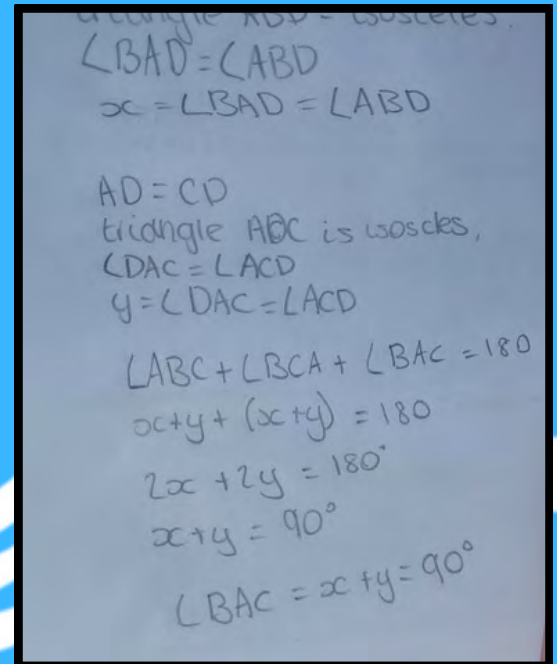 triangle ABD = isosceles.
∠BAD = ∠ABD
x = ∠BAD = ∠ABD
AD = CD
triangle ADC is isoscles,
∠DAC = ∠ACD
y = ∠DAC = ∠ACD
∠ABC + ∠BCA + ∠BAC = 180
x+y + (x+y) = 180
2x + 2y = 180°
x+y = 90°
∠BAC = x+y = 90°